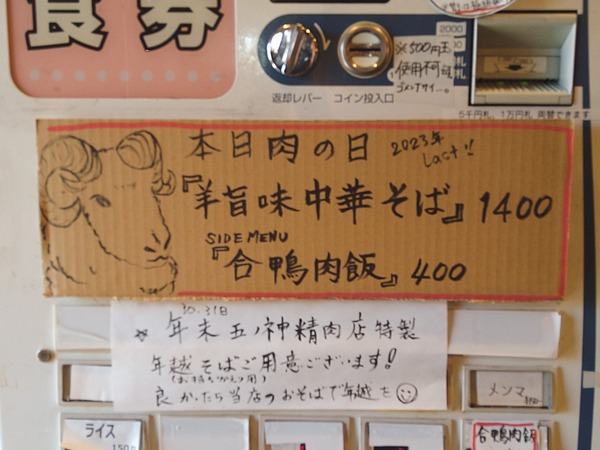 食券
2000
※500円玉
使用不可
ゴメンナサイ…。
返却レバー コイン投入口
5千円札、1万円札 両替できます
本日肉の日 2023年 Last!!
『羊旨味中華そば』1400
SIDE MENU
『合鴨肉飯』400
30.31日
☆ 年末五ノ神精肉店特製
年越そばご用意ございます!
(お持ちかえり用)
良かったら当店のおそばで年越を☺
メンマ
ライス
150
合鴨肉飯